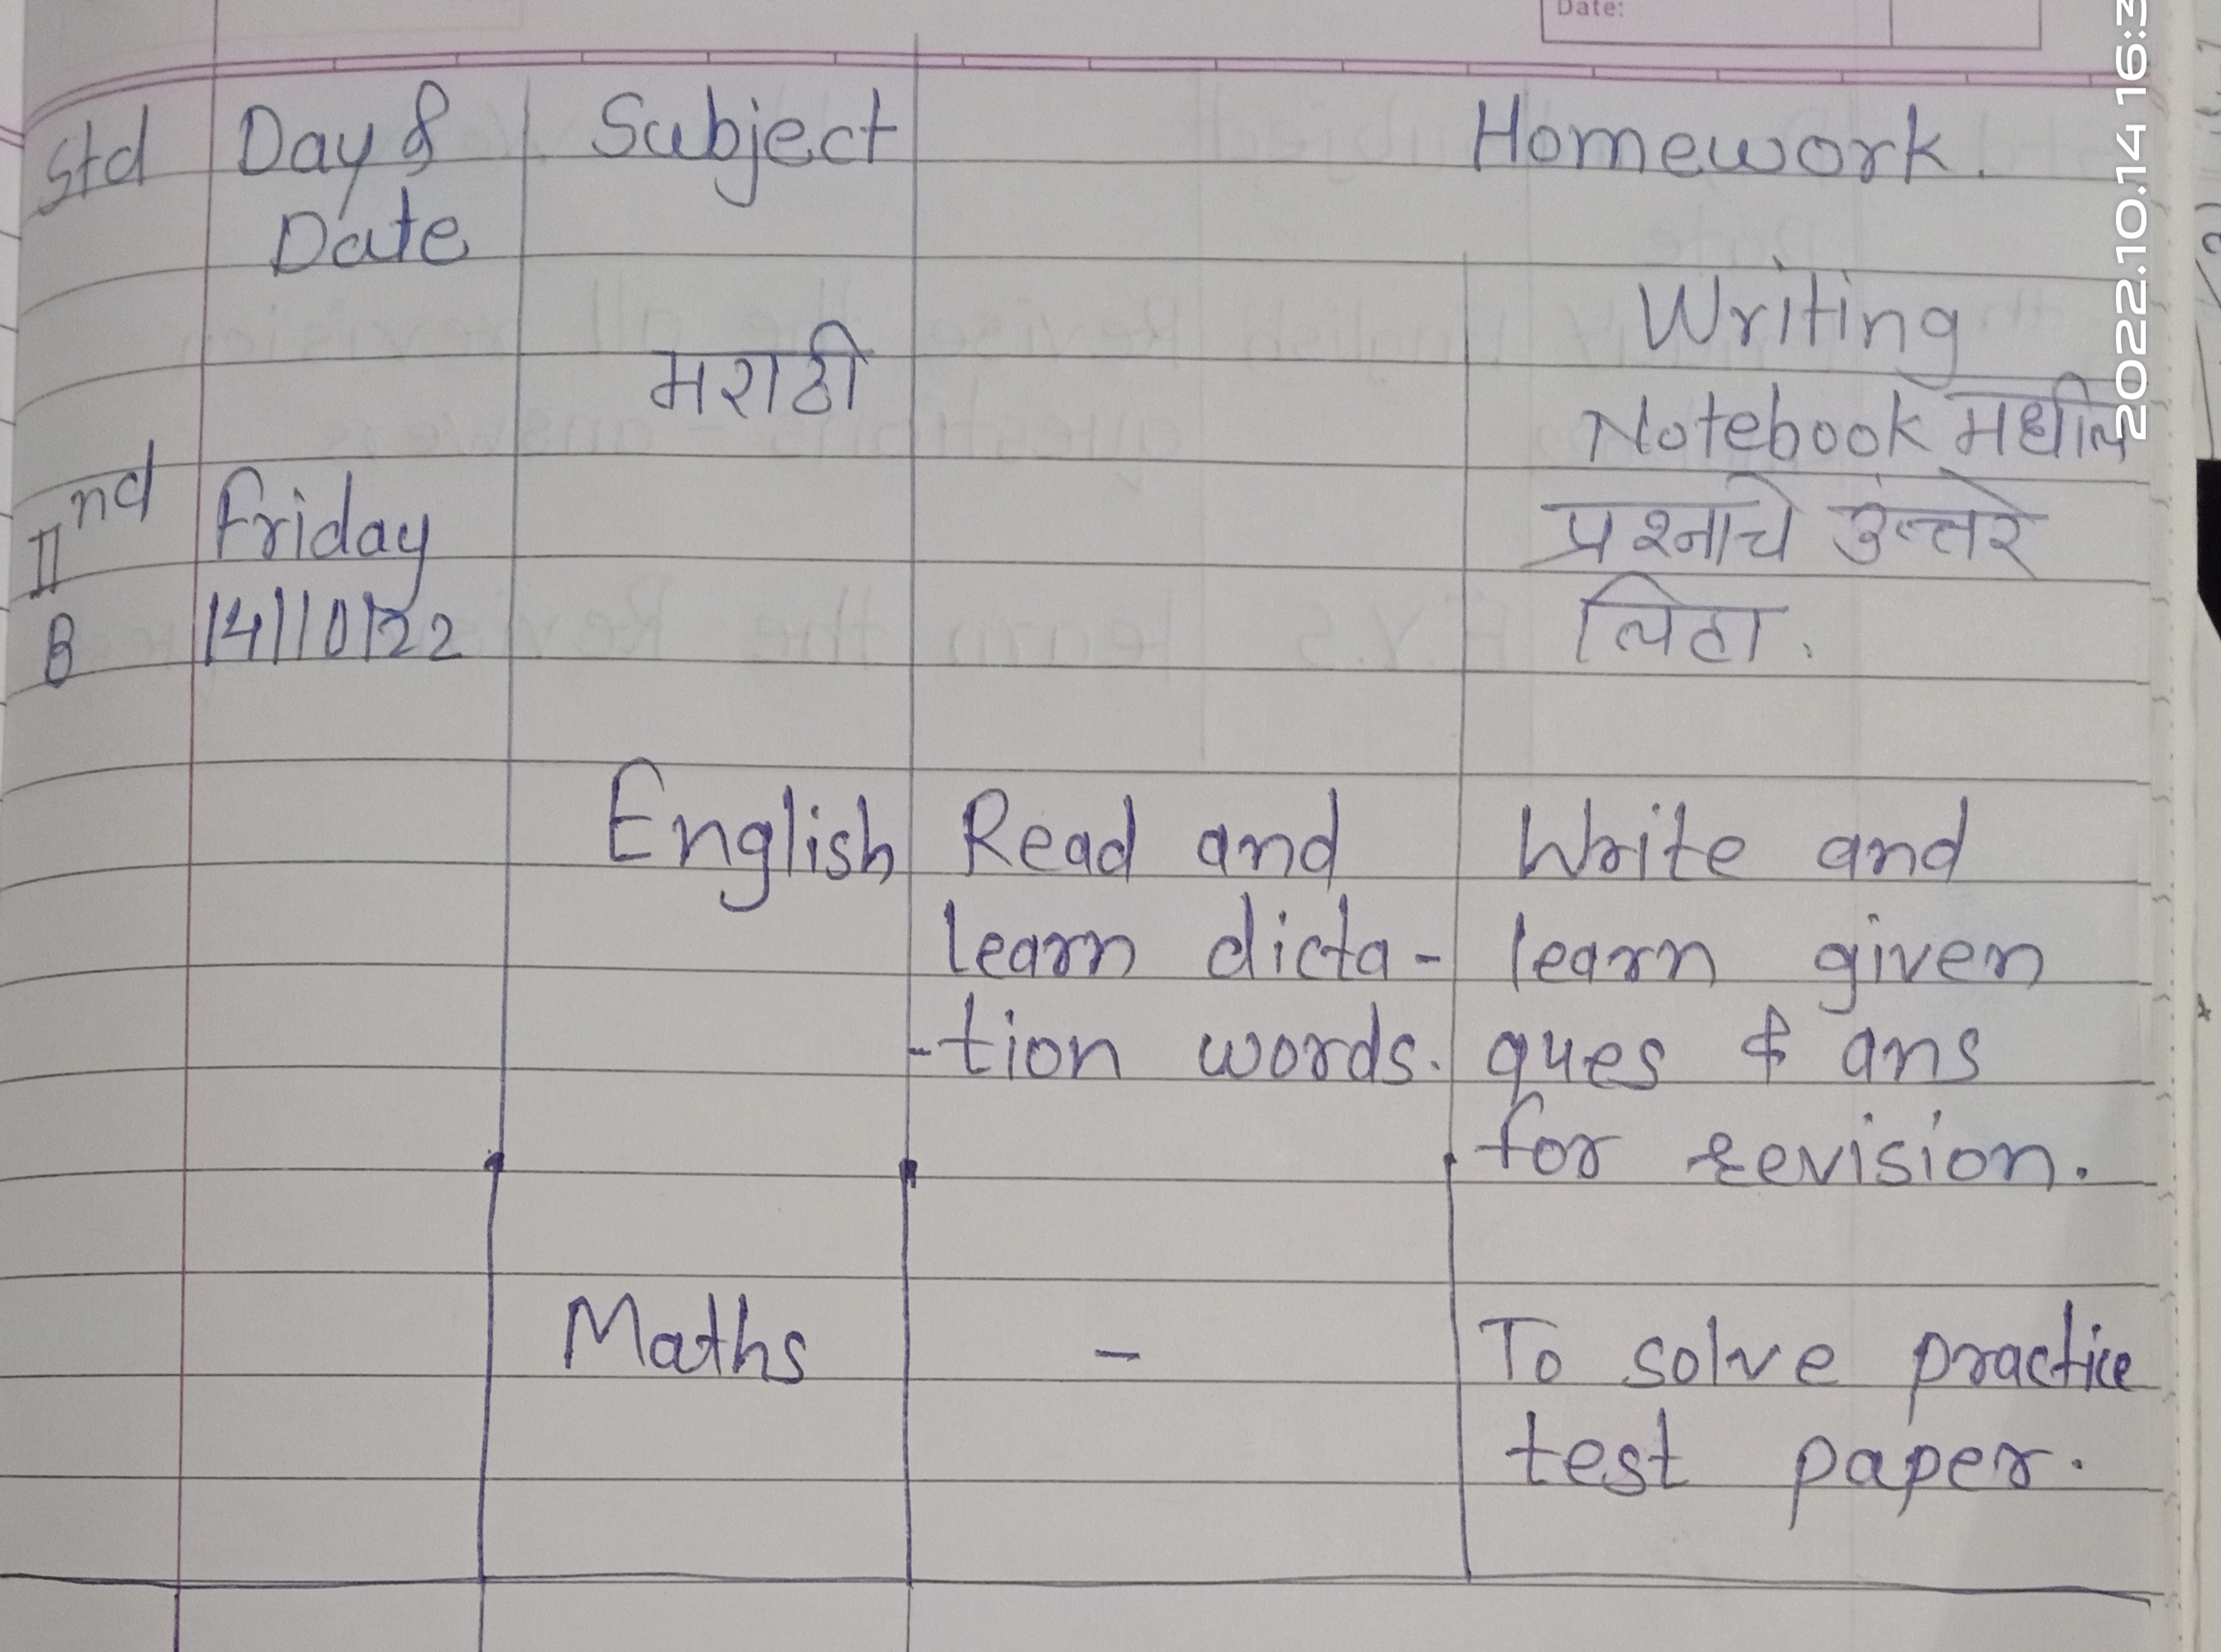 Date:
Std Day & Subject Homework.
Date
Writing
मराठी
Notebook मधील
IInd Friday प्रश्नाचे उत्तरे
B 14/10/22 लिहा.
English Read and Write and
learn dicta- learn given
-tion words. ques & ans
for revision.
Maths - To solve practice
test paper.
2022.10.14 16:3